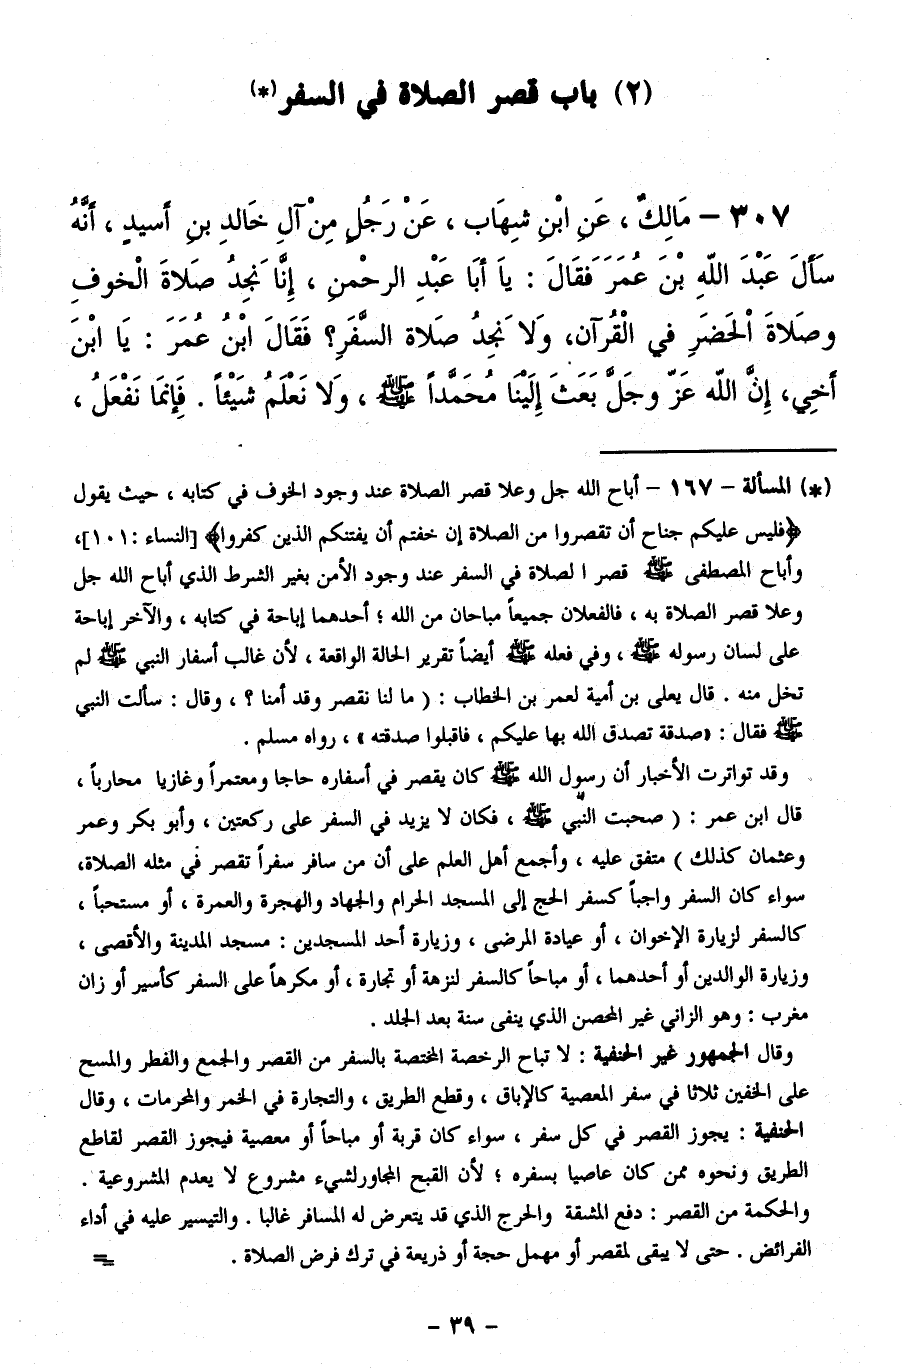 (٢) باب قصر الصلاة في السفر(*)
٣٠٧ – مَالِكٌ ، عَنِ ابْنِ شِهَاب ، عَنْ رَجُلٍ مِنْ آلِ خَالدِ بنِ أَسيدٍ ، أَنَّهُ
سَأَلَ عَبْدَ اللَّهِ بْنَ عُمَرَ فَقَالَ : يا أَبَا عَبْدِ الرحْمنِ ، إِنَّا نَجِدُ صَلاةَ الْخوفِ
وصَلاةَ الْحَضَرِ في الْقُرآن، وَلا نَجِدُ صَلاة السَّفَرِ؟ فَقَالَ ابْنُ عُمَرَ : يَا ابْنَ
أَخي، إِنَّ اللَّه عَزّ وجَلَّ بَعَثَ إِلَيْنَا مُحَمَّداً ﷺ ، ولَا نَعْلَمُ شَيْئاً . فَإِنَّمَا نَفْعَلُ ،
(*) المسألة – ١٦٧ – أباح الله جل وعلا قصر الصلاة عند وجود الخوف في كتابه ، حيث يقول
﴿فليس عليكم جناح أن تقصروا من الصلاة إن خفتم أن يفتنكم الذين كفروا﴾ [النساء :١٠١]،
وأباح المصطفى ﷺ قصر ا لصلاة في السفر عند وجود الأمن بغير الشرط الذي أباح الله جل
وعلا قصر الصلاة به ، فالفعلان جميعاً مباحان من الله ؛ أحدهما إباحة في كتابه ، والآخر إباحة
على لسان رسوله ﷺ ، وفي فعله ﷺ أيضاً تقرير الحالة الواقعة ، لأن غالب أسفار النبي ﷺ لم
تخل منه . قال يعلى بن أمية لعمر بن الخطاب : ( ما لنا نقصر وقد أمنا ؟ ، وقال : سألت النبي
ﷺ فقال : «صدقة تصدق الله بها عليكم ، فاقبلوا صدقته » ، رواه مسلم .
وقد تواترت الأخبار أن رسول الله ﷺ كان يقصر في أسفاره حاجا ومعتمراً وغازيا محارباً ،
قال ابن عمر : ( صحبت النبي ﷺ ، فكان لا يزيد في السفر على ركعتين ، وأبو بكر وعمر
وعثمان كذلك ) متفق عليه ، وأجمع أهل العلم على أن من سافر سفراً تقصر في مثله الصلاة،
سواء كان السفر واجباً كسفر الحج إلى المسجد الحرام والجهاد والهجرة والعمرة ، أو مستحباً ،
كالسفر لزيارة الإخوان ، أو عيادة المرضى ، وزيارة أحد المسجدين : مسجد المدينة والأقصى ،
وزيارة الوالدين أو أحدهما ، أو مباحاً كالسفر لنزهة أو تجارة ، أو مكرهاً على السفر كأسير أو زان
مغرب : وهو الزاني غير المحصن الذي ينفى سنة بعد الجلد .
وقال الجمهور غير الحنفية : لا تباح الرخصة المختصة بالسفر من القصر والجمع والفطر والمسح
على الخفين ثلاثا في سفر المعصية كالإباق ، وقطع الطريق ، والتجارة في الخمر والمحرمات ، وقال
الحنفية : يجوز القصر في كل سفر ، سواء كان قربة أو مباحاً أو معصية فيجوز القصر لقاطع
الطريق ونحوه ممن كان عاصيا بسفره ؛ لأن القبح المجاورلشيء مشروع لا يعدم المشروعية .
والحكمة من القصر : دفع المشقة والحرج الذي قد يتعرض له المسافر غالبا . والتيسير عليه في أداء
الفرائض . حتى لا يبقى لمقصر أو مهمل حجة أو ذريعة في ترك فرض الصلاة . =
– ٣٩ –